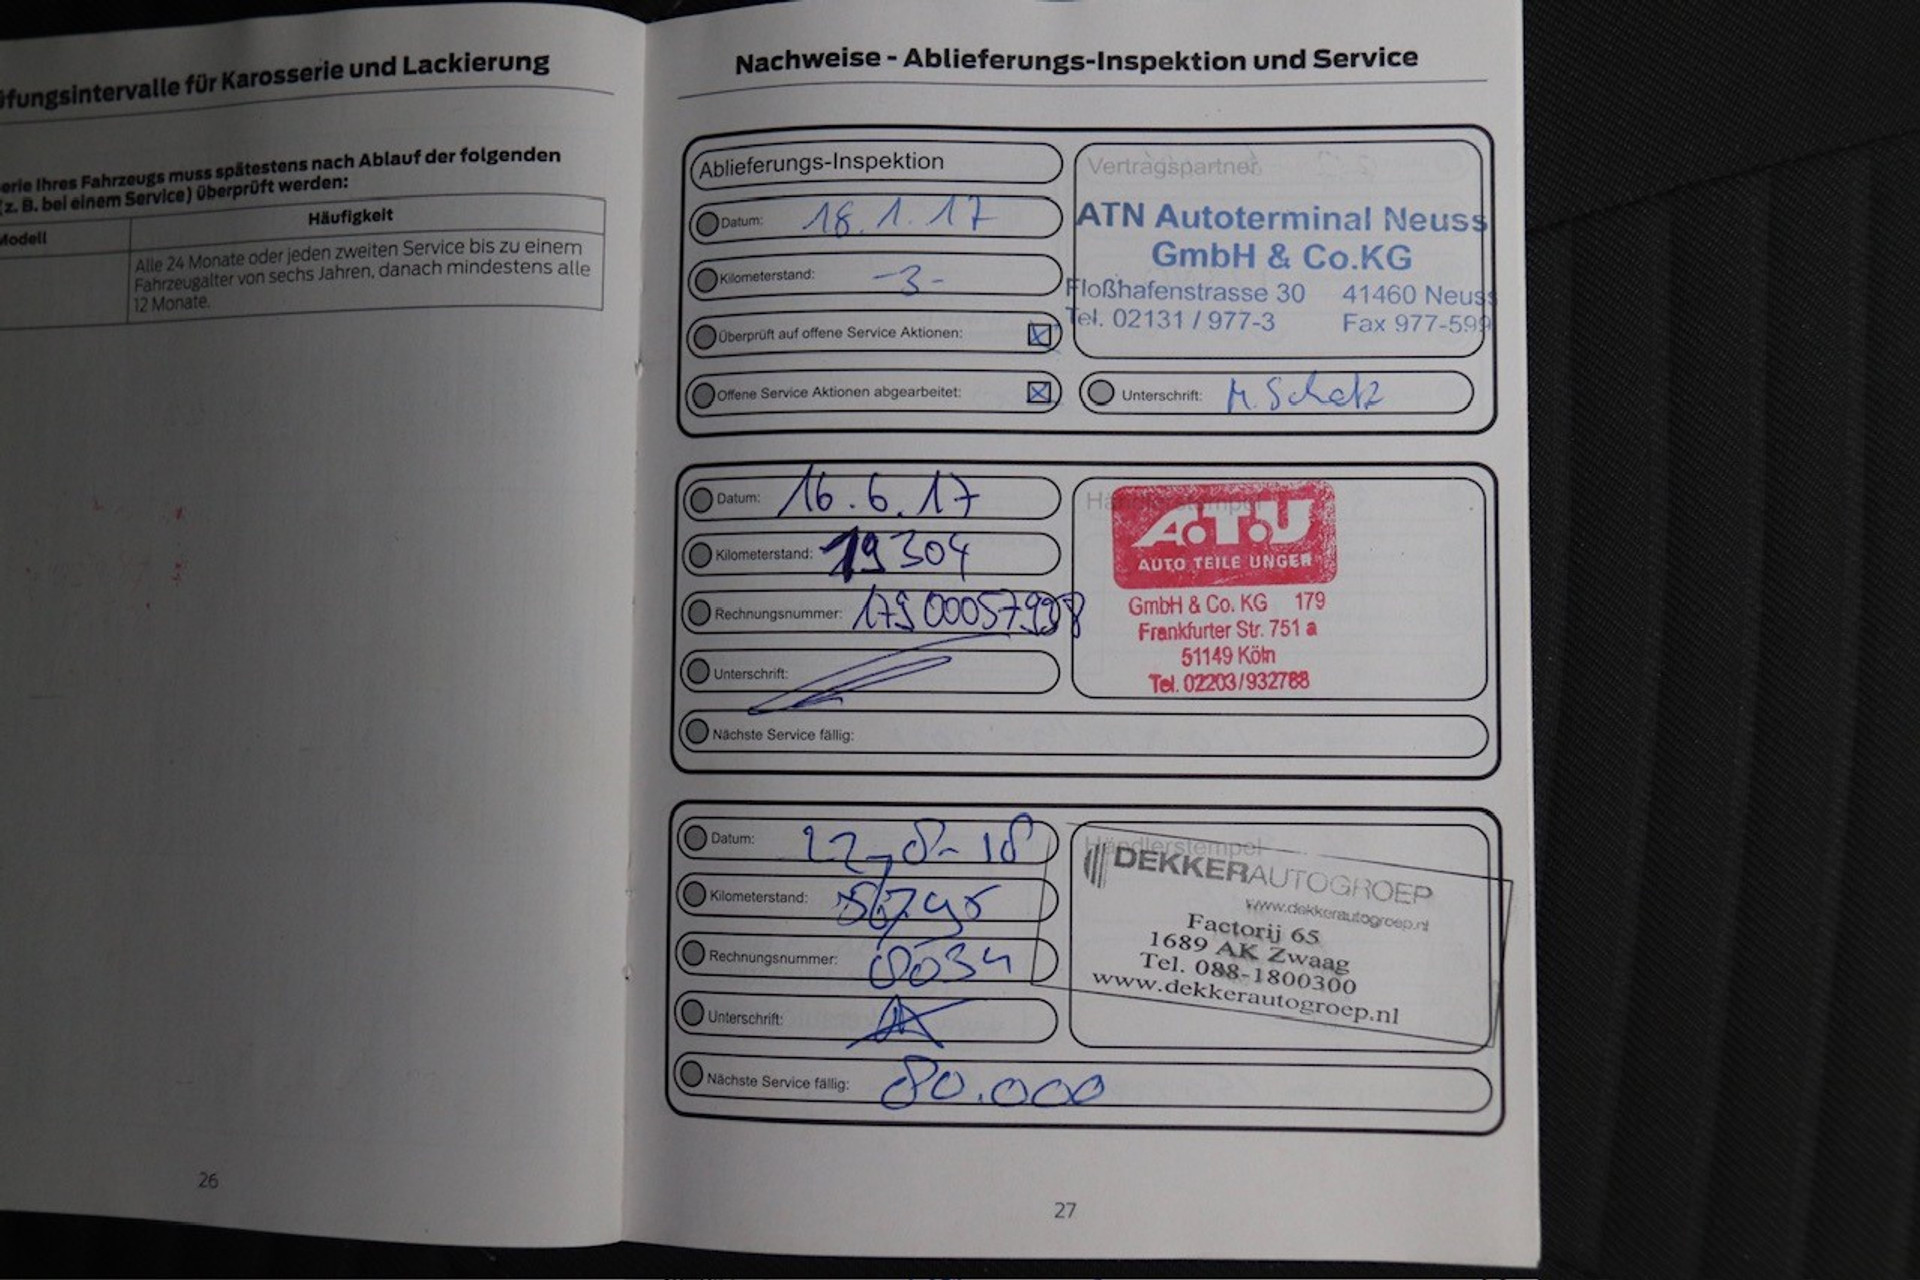 üfungsintervalle für Karosserie und Lackierung
erie Ihres Fahrzeugs muss spätestens nach Ablauf der folgenden
(z. B. bei einem Service) überprüft werden:
Modell
Häufigkeit
Alle 24 Monate oder jeden zweiten Service bis zu einem
Fahrzeugalter von sechs Jahren, danach mindestens alle
12 Monate.
26
Nachweise - Ablieferungs-Inspektion und Service
Ablieferungs-Inspektion
Datum: 18.1.17
Kilometerstand: -3-
Überprüft auf offene Service Aktionen:
Offene Service Aktionen abgearbeitet:
Vertragspartner
ATN Autoterminal Neuss
GmbH & Co.KG
Floßhafenstrasse 30 41460 Neuss
Tel. 02131 / 977-3 Fax 977-599
Unterschrift:
Datum: 16.6.17
Kilometerstand: 19304
Rechnungsnummer:
Unterschrift:
Nächste Service fällig:
Händlerstempel
A.T.U
AUTO TEILE UNGER
GmbH & Co. KG 179
Frankfurter Str. 751 a
51149 Köln
Tel. 02203/932788
Datum: 22-8-18
Kilometerstand:
Rechnungsnummer: 8034
Unterschrift:
Nächste Service fällig: 80.000
Händlerstempel
DEKKERAUTOGROEP
www.dekkerautogroep.nl
Factorij 65
1689 AK Zwaag
Tel. 088-1800300
www.dekkerautogroep.nl
27